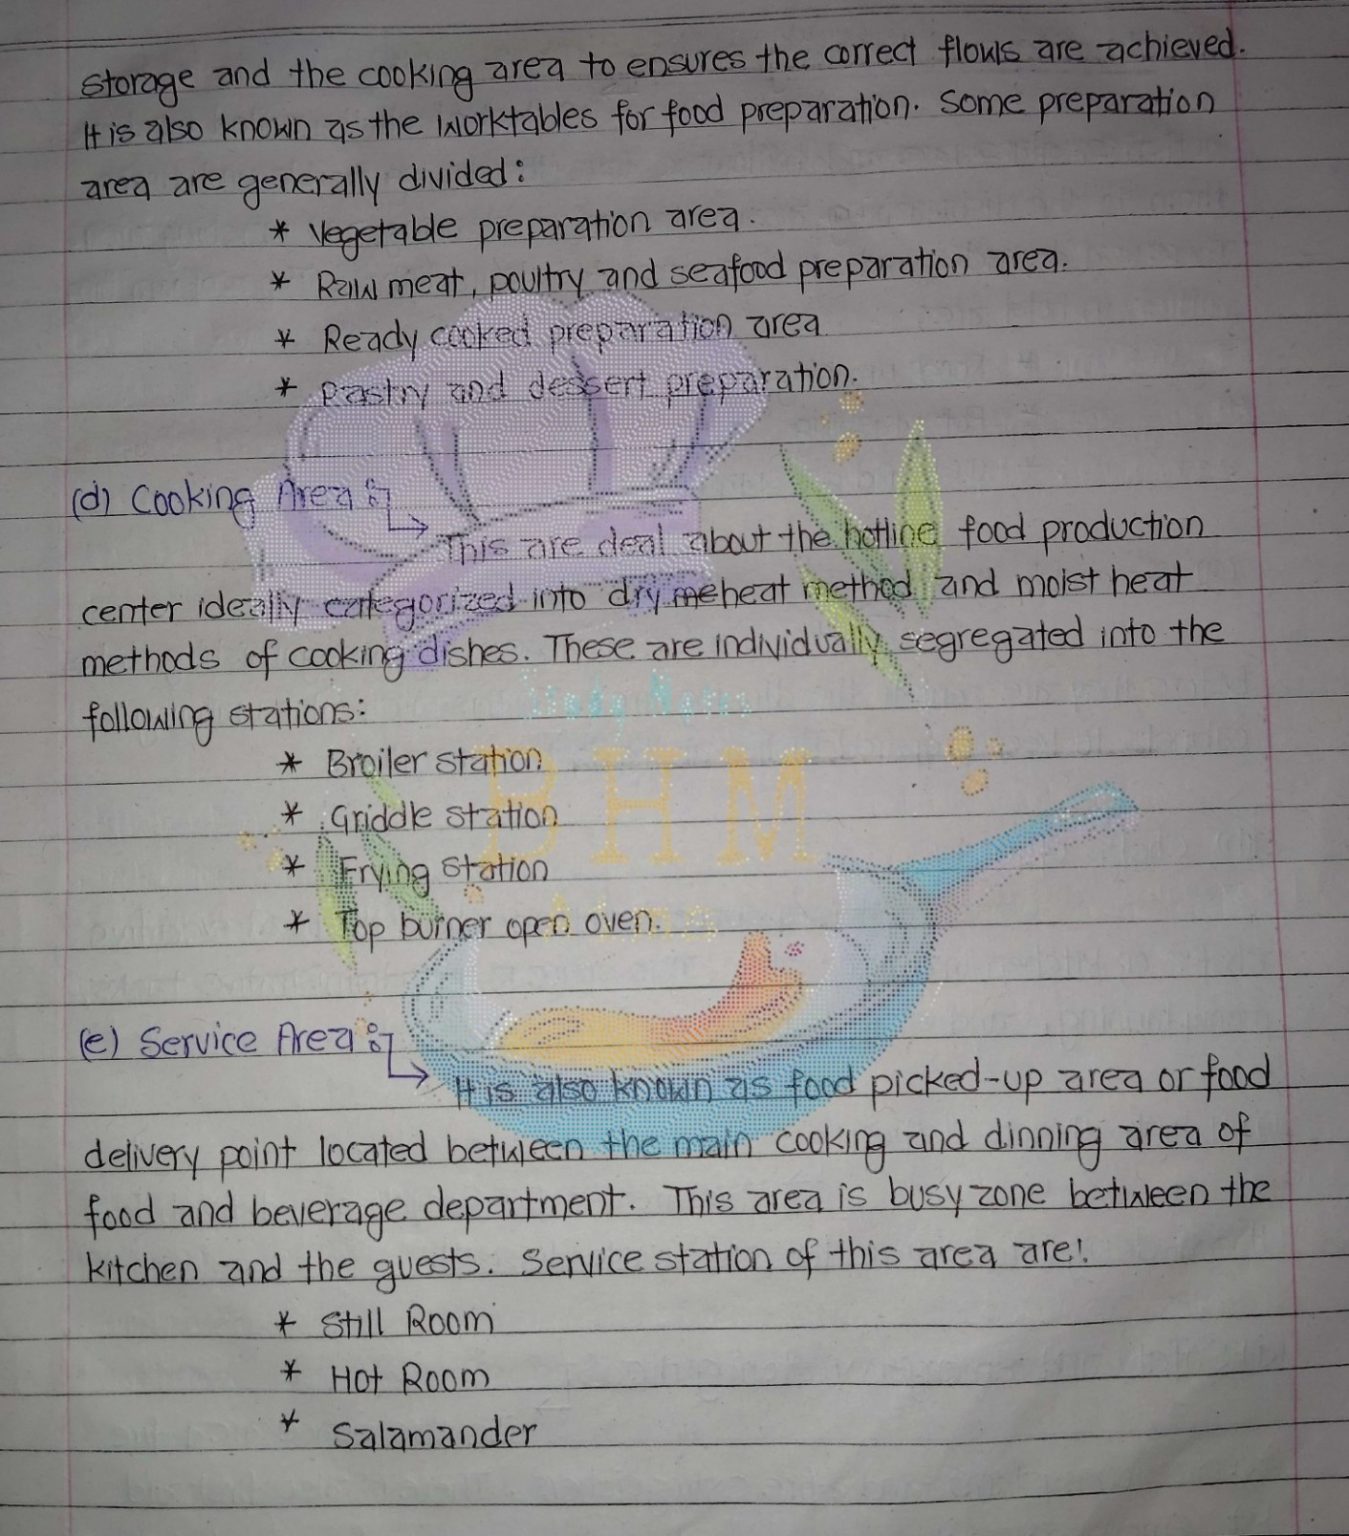 storage and the cooking area to ensures the correct flows are achieved.
It is also known as the worktables for food preparation. Some preparation
area are generally divided:
* Vegetable preparation area.
* Raw meat, poultry and seafood preparation area.
* Ready cooked preparation area
* Pastry and dessert preparation.
(d) Cooking Area :
This are deal about the hotline food production
center ideally categorized into dry me heat method and moist heat
methods of cooking dishes. These are individually segregated into the
following stations:
Study Notes
* Broiler station
BHM
* Griddle station
* Frying station
* Top burner open oven.
(e) Service Area :
It is also known as food picked-up area or food
delivery point located between the main cooking and dinning area of
food and beverage department. This area is busy zone between the
kitchen and the guests. Service station of this area are:
* Still Room
* Hot Room
* Salamander